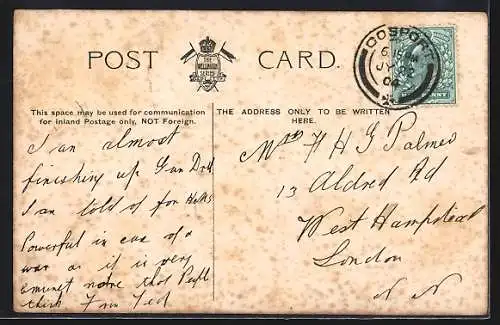 POST CARD.
THE
WELLINGTON
SERIES
GOSPORT
This space may be used for communication
for inland Postage only, NOT Foreign.
THE ADDRESS ONLY TO BE WRITTEN
HERE.
I am almost
finishing up Gun Drill
I am told of for
Powerful in case of a
war as it is very
more that People
think From Ted
Mrs H H G Palmer
13 Aldred Rd
West Hampstead
London
N N